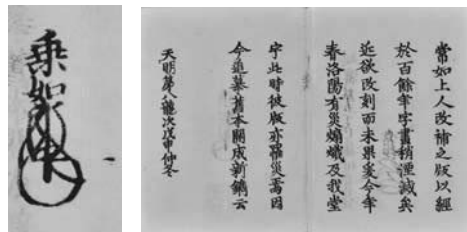 常如上人改補之版以經
於百餘年字畫稍湮滅矣
近欲改刻而未果爰今年
春洛陽有災煽熾及我堂
宇此時彼版亦罹災焉因
今追摹舊本開成新鐫云
天明八龍次戊申仲冬
乗如